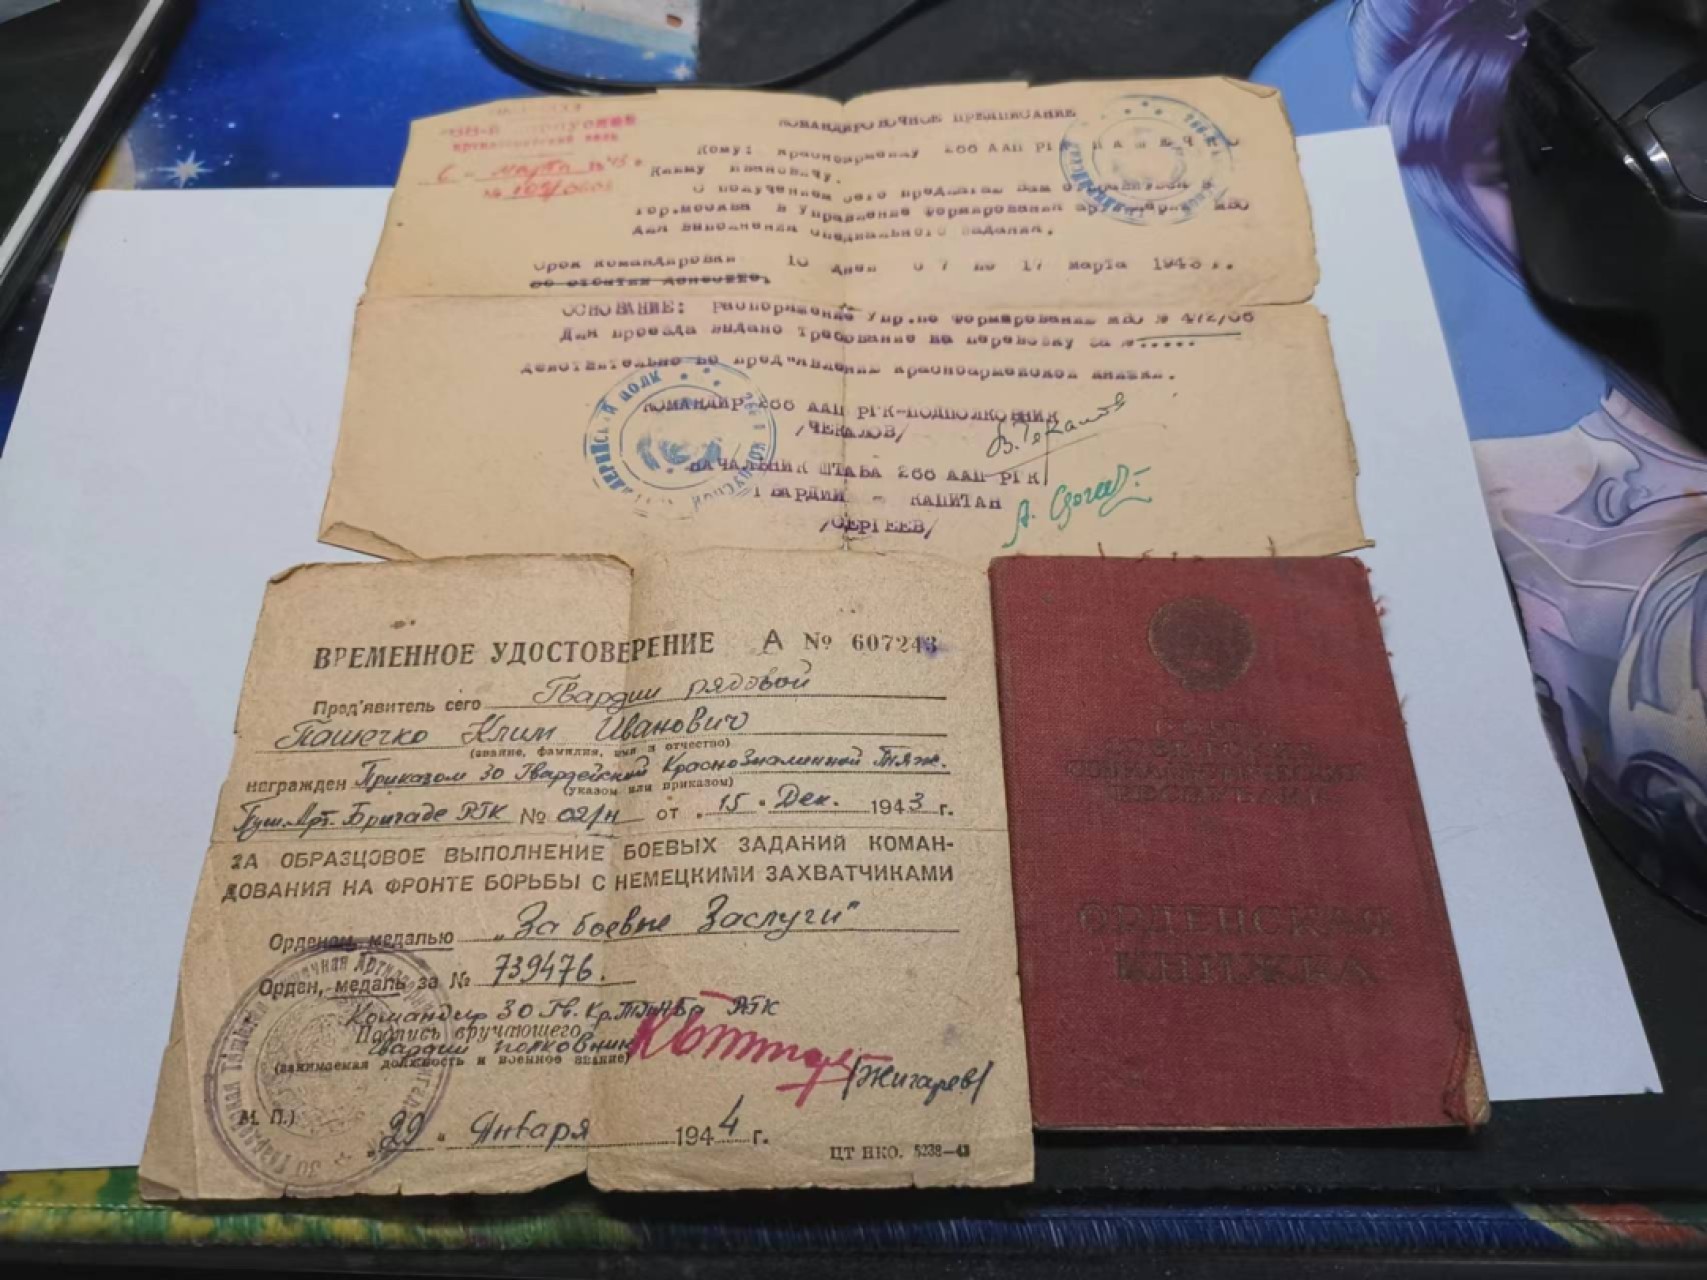 корпусной
артиллерийский полк
6 марта 1943 г.
№
КОМАНДИРОВОЧНОЕ ПРЕДПИСАНИЕ
Кому: красноармейцу 266 ААП РГК ПАШЕЧКО
Климу Ивановичу.
С получением сего предлагаю Вам отправиться в
гор.Москва в Управление Формирования артиллерии МВО
для выполнения специального задания.
Срок командировки 10 дней с 7 по 17 марта 1943 г.
ОСНОВАНИЕ: Распоряжение Упр.по Формированию МВО № 472/об
Для проезда выдано требование на перевозку за №.....
Действительно по предъявлении красноармейской книжки.
КОМАНДИР 266 ААП РГК-ПОДПОЛКОВНИК
/ЧЕКАЛОВ/
НАЧАЛЬНИК ШТАБА 266 ААП РГК
ГВАРДИИ - КАПИТАН
/СЕРГЕЕВ/
ВРЕМЕННОЕ УДОСТОВЕРЕНИЕ А № 607243
Пред'явитель сего Гвардии рядовой
Пашечко Клим Иванович
(звание, фамилия, имя и отчество)
награжден Приказом 30 Гвардейской Краснознаменной Тяж.
(указом или приказом)
Пуш.Арт.Бригаде РГК № 02/н от „15" Дек. 1943 г.
ЗА ОБРАЗЦОВОЕ ВЫПОЛНЕНИЕ БОЕВЫХ ЗАДАНИЙ КОМАН-
ДОВАНИЯ НА ФРОНТЕ БОРЬБЫ С НЕМЕЦКИМИ ЗАХВАТЧИКАМИ
Орденом, медалью „За боевые Заслуги"
Орден, медаль за № 739476.
Командир 30 Гв.Кр.ТПАБр РГК
Подпись вручающего
Гвардии полковник
(занимаемая должность и военное звание)
/Жигарев/
М. П.
„29" Января 1944 г.
ЦТ НКО. 5238—43
СОЮЗ
СОВЕТСКИХ
СОЦИАЛИСТИЧЕСКИХ
РЕСПУБЛИК
ОРДЕНСКАЯ
КНИЖКА